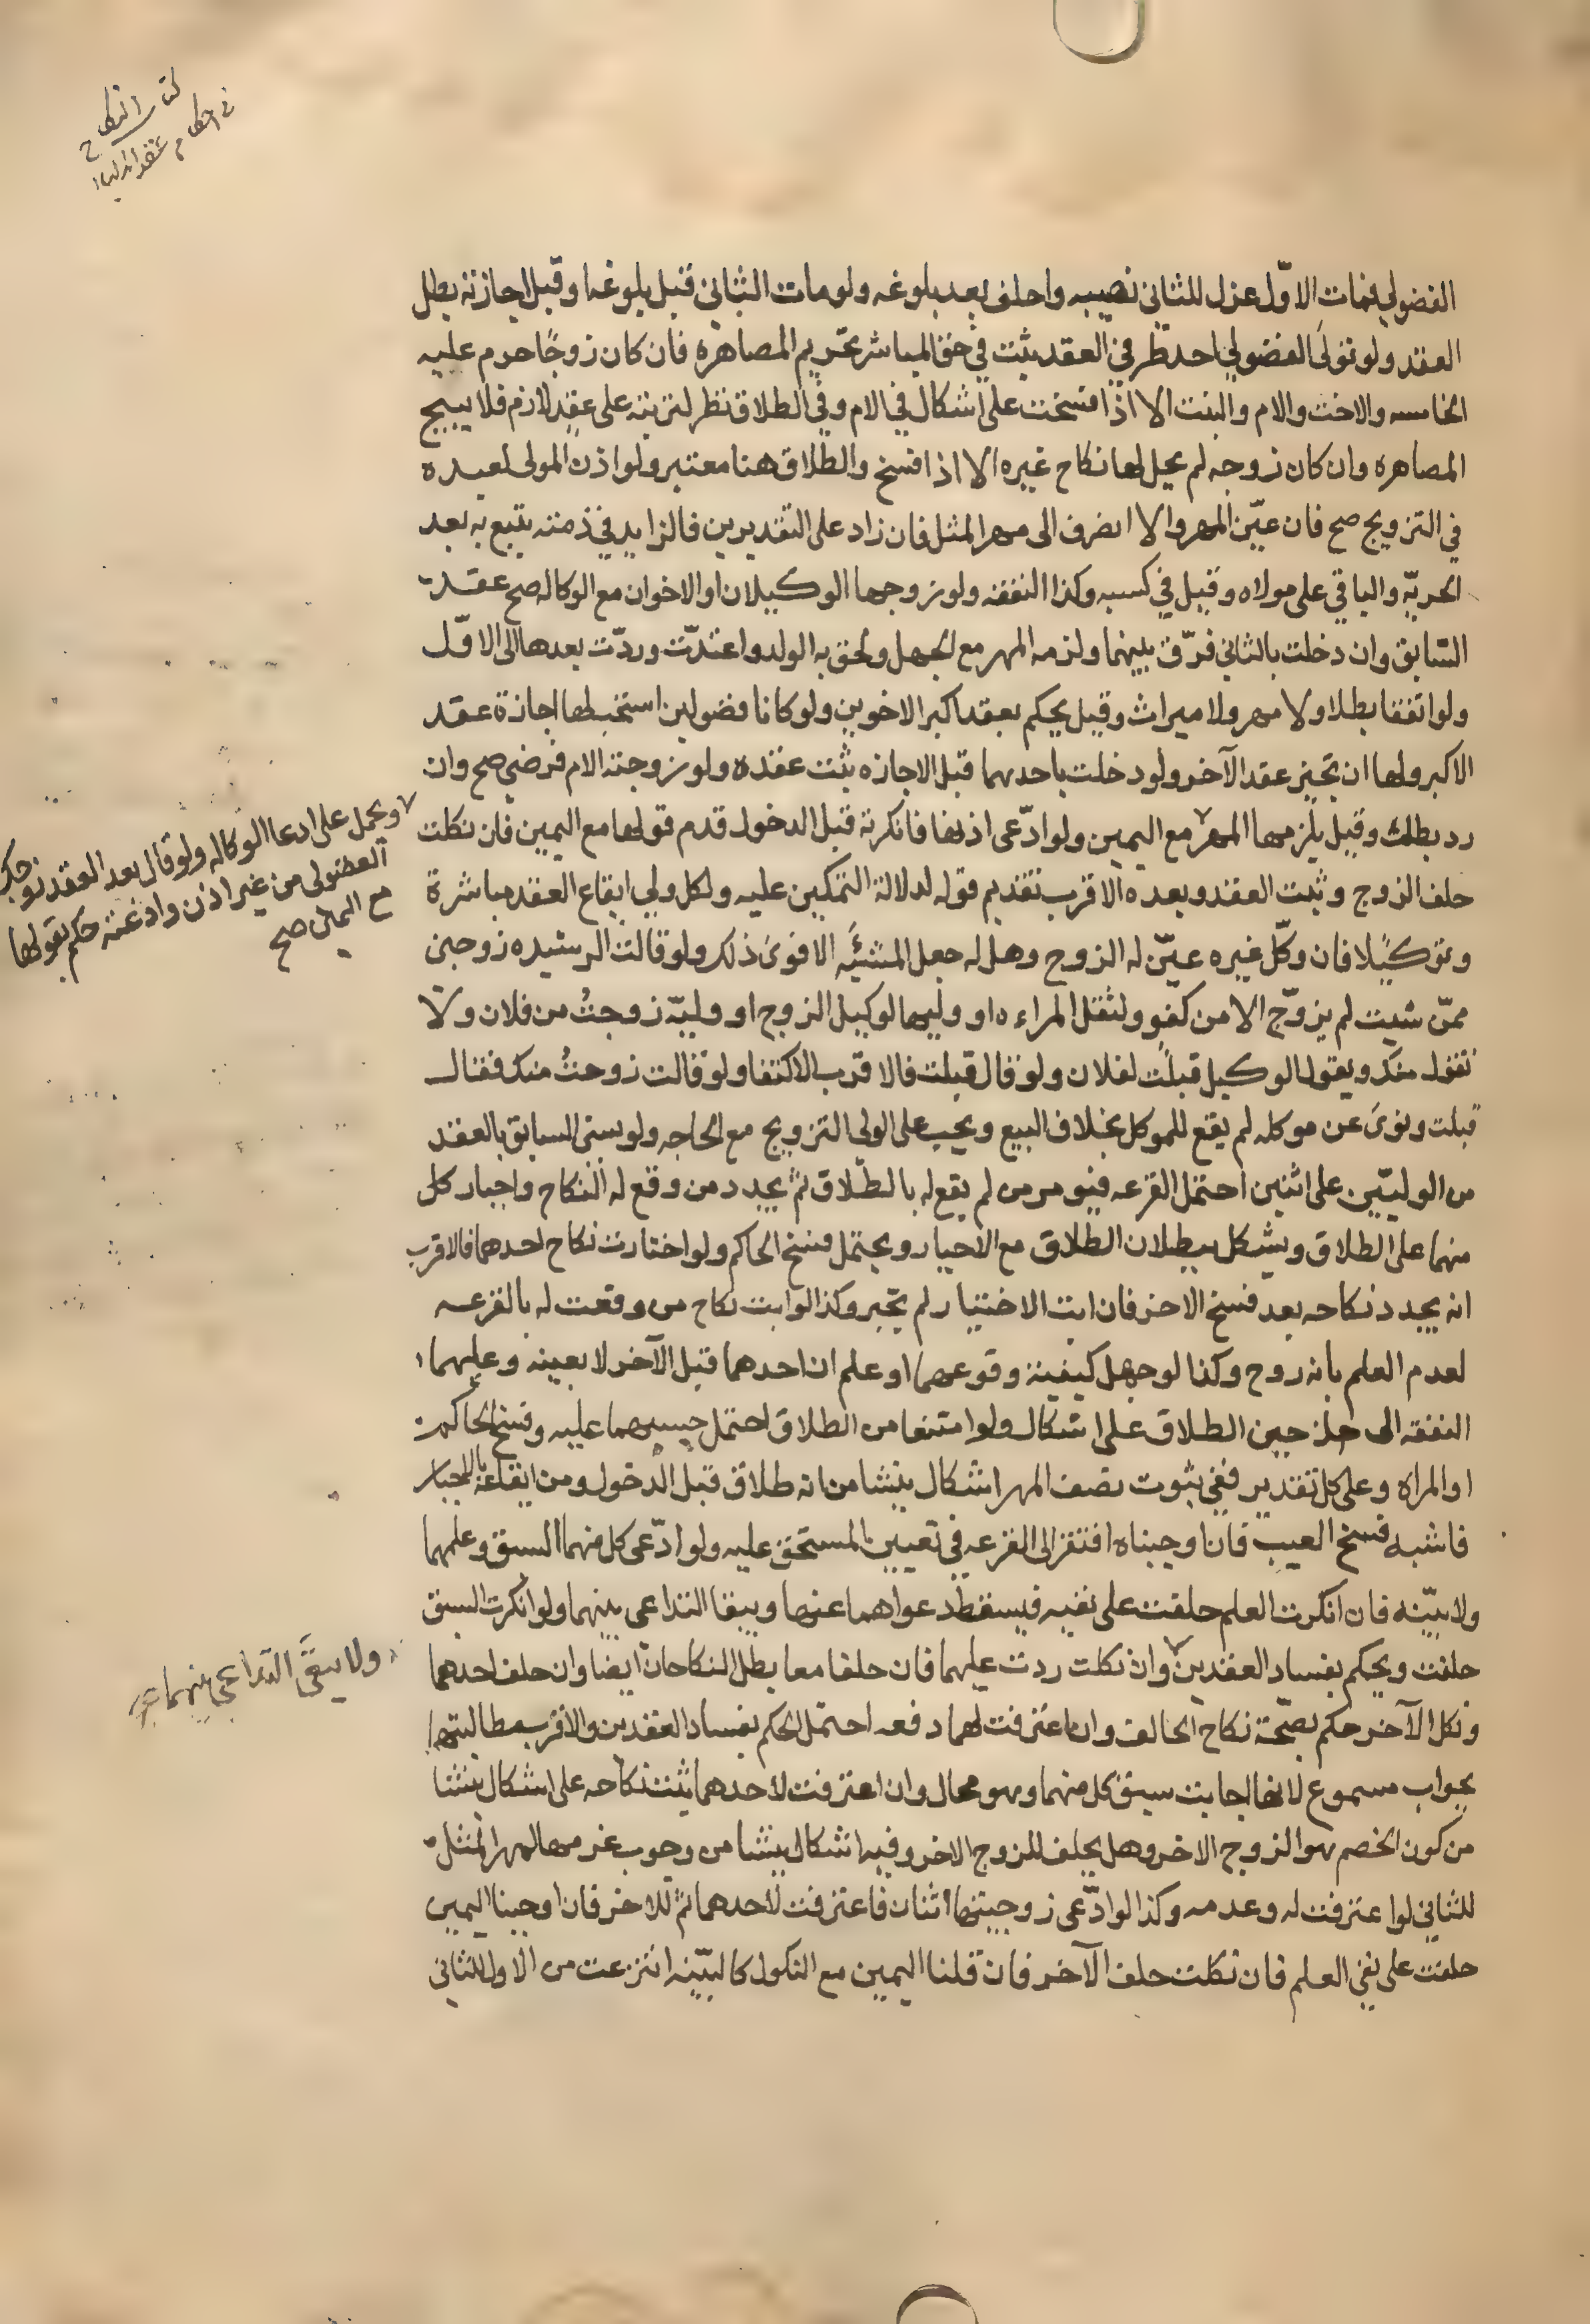 كتاب النكاح
في احكام عقد الاولياء
الفضولي فمات الاوّل عزل للثاني نصيبه واحلف بعد بلوغه ولو مات الثاني قبل بلوغه او قبل اجازته بطل
العقد ولو تولى الفضولي احد طرفي العقد يثبت في حق المباشر تحريم المصاهره فان كان زوجًا حرم عليه
الخامسه والاخت والام والبنت الا اذا فسخت على اشكال في الام وفي الطلاق نظر لترتبه على عقدٍ لازم فلا يبيح
المصاهره وان كان زوجه لم يحل لها نكاح غيره الا اذا فسخ والطلاق هنا معتبر ولو اذن المولى لعبده
في التزويج صح فان عيّن المهر والا انصرف الى مهر المثل فان زاد على التقديرين فالزايد في ذمته يتبع به بعد
الحريّه والباقي على مولاه وقيل في كسبه وكذا النفقه ولو زوجها الوكيلان او الاخوان مع الوكاله صح عقد
السّابق وان دخلت بالثاني فرّق بينهما ولزمه المهر مع الجهل ولحق به الولد واعتدّت وردّت بعدها الى الاوّل
ولو اتفقا بطلا ولا مهر ولا ميراث وقيل يحكم بعقد اكبر الاخوين ولو كانا فضولين استحب لها اجازة عقد
الاكبر ولها ان تجيز عقد الآخر ولو دخلت باحدهما قبل الاجازه يثبت عقده ولو زوجته الام فرضي صح وان
رد بطلت وقيل يلزمها المهر مع اليمين ولو ادّعى اذنها فانكرته قبل الدخول قدم قولها مع اليمين فان نكلت
ويحمل على ادعا الوكاله ولو قال بعد العقد زوجك
الفضولي من غير اذن وادعته حكم بقولها
مع اليمين صح
حلف الزوج وثبت العقد وبعده الاقرب تقديم قوله لدلالة التمكين عليه ولكل ولي ايقاع العقد مباشرة
وتوكيلا فان وكّل غيره عيّن له الزوج وهل له جعل المشيّه الاقوى ذلك ولو قالت الرشيده زوجني
ممّن شيت لم يزوّج الا من كفو ولتقل المراءه او وليها لوكيل الزوج او وليّه زوجتُ من فلان ولا
تقول منك ويقول الوكيل قبلت لفلان ولو قال قبلت فالاقرب الاكتفا ولو قالت زوجتُ منك فقال
قبلت ونوى عن موكله لم يقع للموكل بخلاف البيع ويجب على الولي التزويج مع الحاجه ولو نسي السابق بالعقد
من الوليّين على اثنين احتمل القرعه فيومر من لم يقع له بالطّلاق ثم يجدد من وقع له النكاح واجبار كل
منهما على الطلاق ويشكل ببطلان الطلاق مع الاجبار ويحتمل فسخ الحاكم ولو اختارت نكاح احدهما فالاقرب
انه يجدد نكاحه بعد فسخ الاخر فان ابت الاختيار لم تجبر وكذا لو ابت نكاح من وقعت له بالقرعه
لعدم العلم بانه زوج وكذا لو جهل كيفية وقوعهما او علم ان احدهما قبل الآخر لا بعينه وعليهما
النفقه الى حين الطلاق على اشكال ولو امتنعا من الطلاق احتمل حبسهما عليه وفسخ الحاكم
او المراه وعلى كل تقدير ففي ثبوت نصف المهر اشكال ينشا من انه طلاق قبل الدخول ومن ايقاعه بالاجبار
فاشبه فسخ العيب فان اوجبناه افتقر الى القرعه في تعيين المستحق عليه ولو ادّعى كل منهما السبق وعلمها
ولا بيّنه فان انكرت العلم حلفت على نفيه فيسقط دعواهما عنها ويبقا التداعي بينهما ولو انكرت السبق
حلفت ويحكم بفساد العقدين وان نكلت ردت عليهما فان حلفا معا بطل النكاحان ايضا وان حلف احدهما
ولا يبقى التداعي بينهما
ونكل الآخر حكم بصحّة نكاح الحالف وان اعترفت لهما دفعه احتمل الحكم بفساد العقدين والاقرب مطالبتها
بجواب مسموع لانها اجابت سبق كل منهما وهو محال وان اعترفت لاحدهما يثبت نكاحه على اشكال ينشا
من كون الخصم هو الزوج الاخر وهل يحلف للزوج الاخر وفيه اشكال ينشا من وجوب غرمها لمهر المثل
للثاني لو اعترفت له وعدمه وكذا لو ادّعى زوجيتها اثنان فاعترفت لاحدهما ثم للاخر فان اوجبنا اليمين
حلفت على نفي العلم فان نكلت حلف الآخر فان قلنا اليمين مع النكول كالبيّنه انتزعت من الاول للثاني